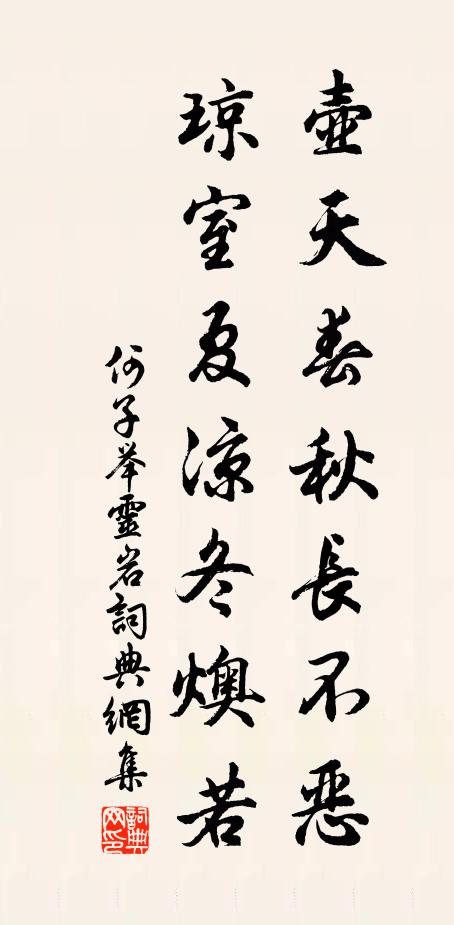 壺天春秋長不惡
琼室夏涼冬燠若
何子举靈岩詞典網集
詞典網印